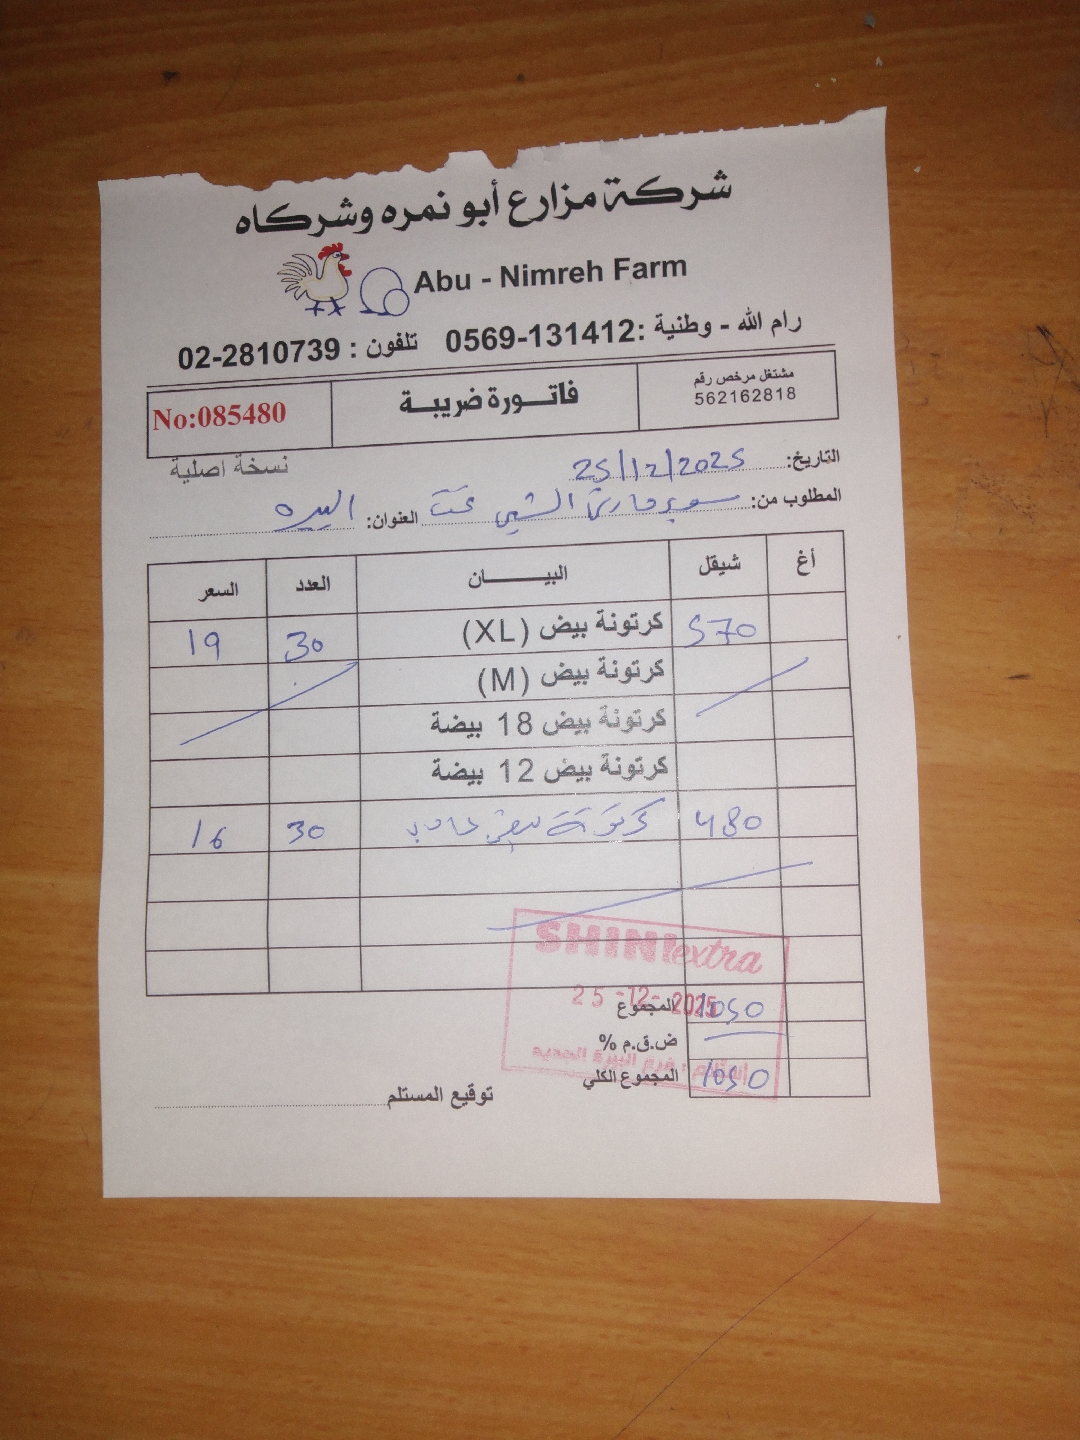 شركة مزارع أبو نمره وشركاه
Abu - Nimreh Farm
رام الله - وطنية :0569-131412 تلفون : 02-2810739
مشتغل مرخص رقم
562162818
فاتـــورة ضريبــة
No:085480
نسخة اصلية
التاريخ: 25/12/2025
المطلوب من: سوبرماركت الشيني العنوان: البيره
أغ شيقل البيـــــــان العدد السعر
570 كرتونة بيض (XL) 30 19
كرتونة بيض (M)
كرتونة بيض 18 بيضة
كرتونة بيض 12 بيضة
480 كرتونة بيض 30 16
SHINI extra
25 -12- 2025
المجموع 1050
ض.ق.م %
المجموع الكلي 1050
توقيع المستلم